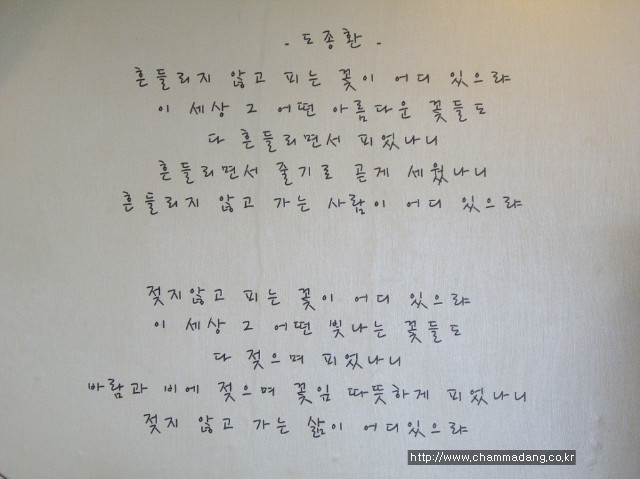 - 도종환 -
흔들리지 않고 피는 꽃이 어디 있으랴
이 세상 그 어떤 아름다운 꽃들도
다 흔들리면서 피었나니
흔들리면서 줄기로 곧게 세웠나니
흔들리지 않고 가는 사람이 어디 있으랴
젖지않고 피는 꽃이 어디 있으랴
이 세상 그 어떤 빛나는 꽃들도
다 젖으며 피었나니
바람과 비에 젖으며 꽃잎 따뜻하게 피었나니
젖지 않고 가는 삶이 어디있으랴
http://www.chammadang.co.kr